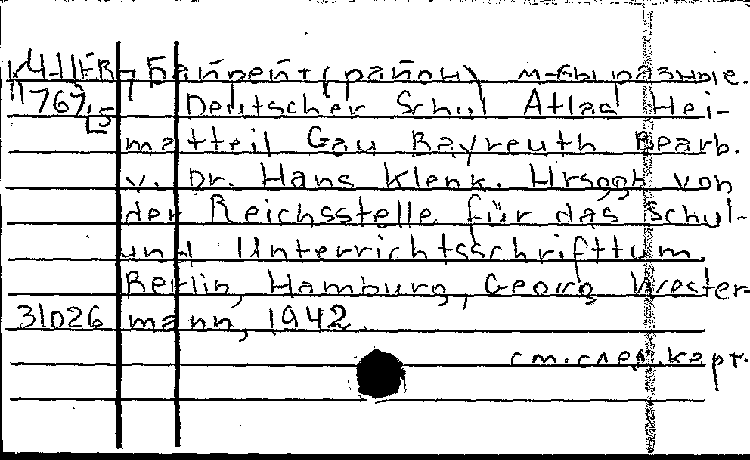 Байрейт (район) м-бы разные.
767 Deutscher Schul Atlas Hei-
L5
matteil Gau Bayreuth Bearb.
v. Dr. Hans Klenk. Hrsggb von
der Reichsstelle für das Schul-
und Unterrichtsschrifttum.
Berlin, Hamburg, Georg Wester-
31026 mann, 1942.
см.след.карт.